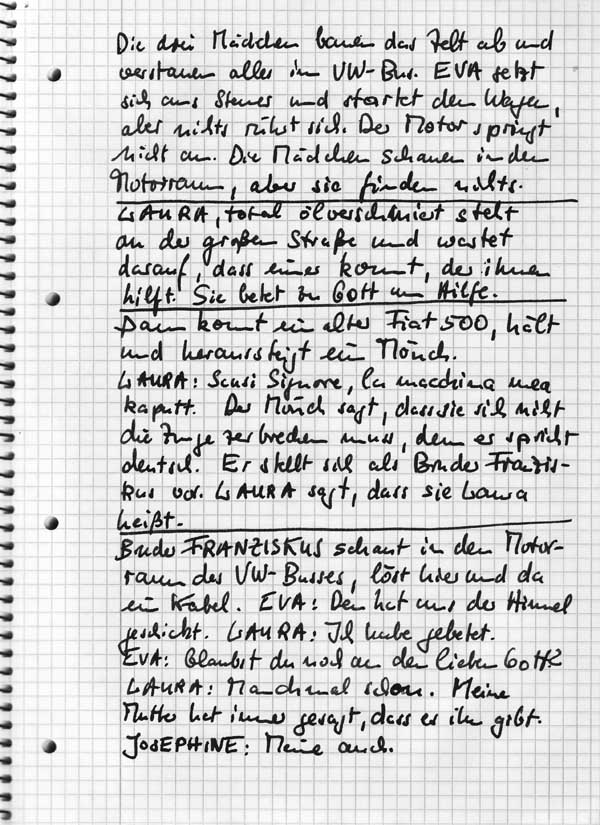 Die drei Mädchen bauen das Zelt ab und
verstauen alles im VW-Bus. EVA setzt
sich ans Steuer und startet den Wagen,
aber nichts rührt sich. Der Motor springt
nicht an. Die Mädchen schauen in den
Motorraum, aber sie finden nichts.
LAURA, total ölverschmiert steht
an der großen Straße und wartet
darauf, dass einer kommt, der ihnen
hilft. Sie betet zu Gott um Hilfe.
Dann kommt ein alter Fiat 500, hält
und heraussteigt ein Mönch.
LAURA: Scusi Signore, la macchina mea
kaputt. Der Mönch sagt, dass sie sich nicht
die Zunge zerbrechen muss, denn er spricht
deutsch. Er stellt sich als Bruder Franzis-
kus vor. LAURA sagt, dass sie Laura
heißt.
Bruder FRANZISKUS schaut in den Motor-
raum des VW-Busses, löst hier und da
ein Kabel. EVA: Den hat uns der Himmel
geschickt. LAURA: Ich habe gebetet.
EVA: Glaubst du noch an den lieben Gott?
LAURA: Manchmal schon. Meine
Mutter hat immer gesagt, dass es ihn gibt.
JOSEPHINE: Meine auch.